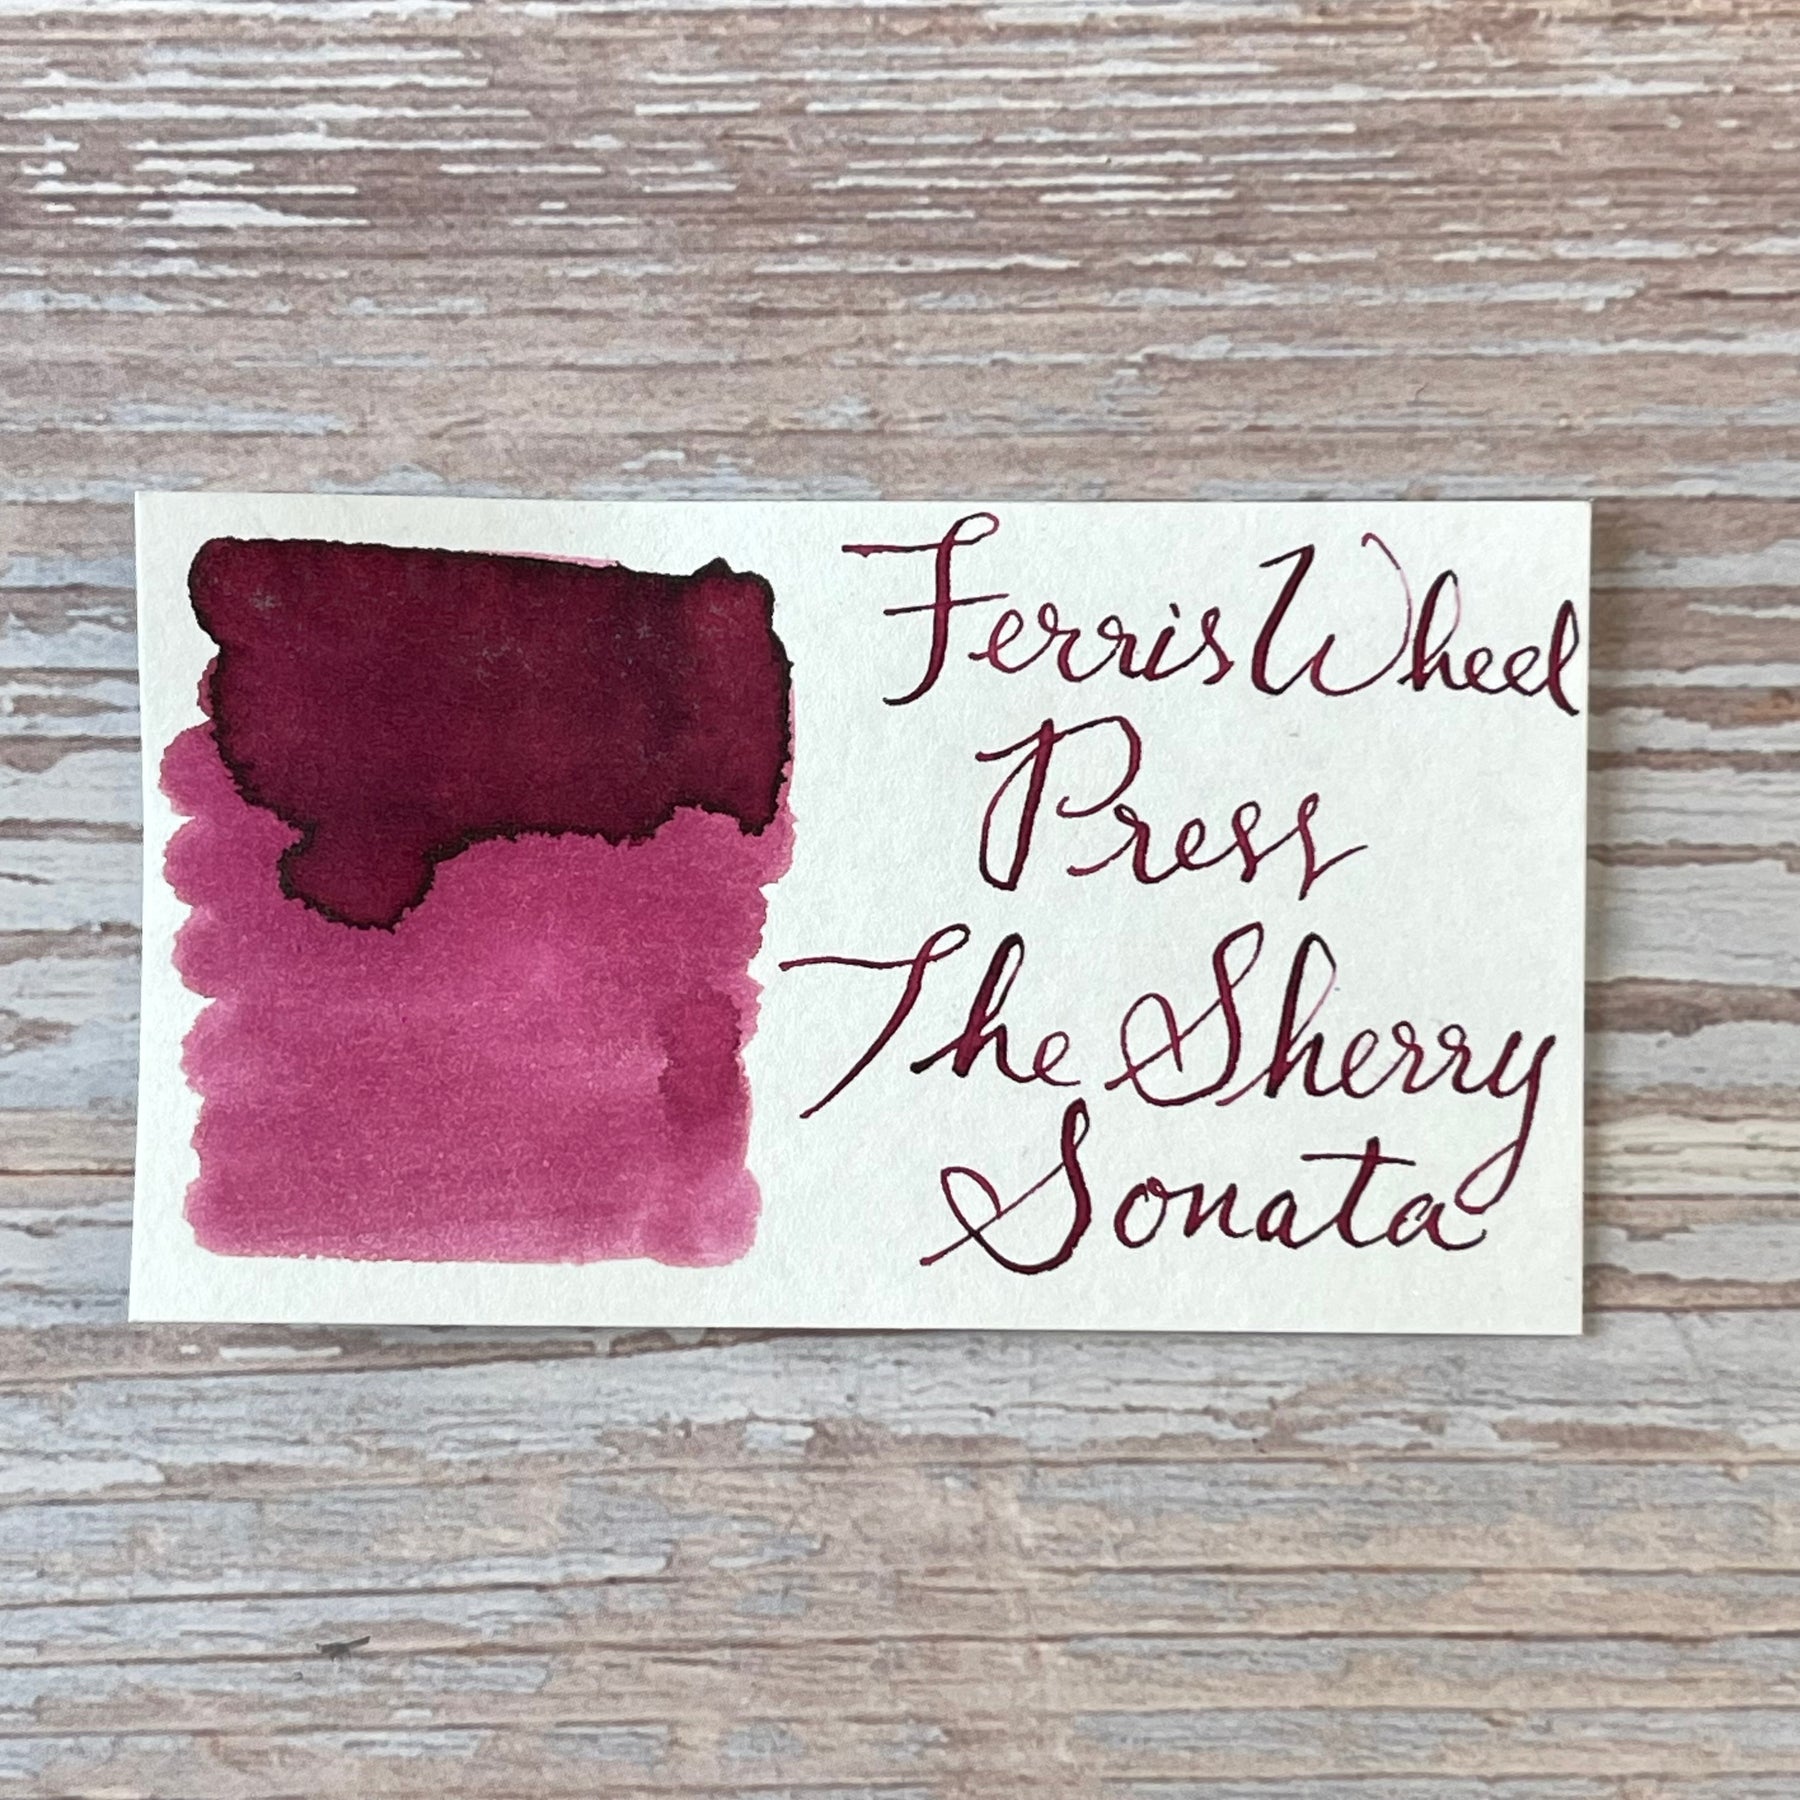 Ferris Wheel
Press
The Sherry
Sonata